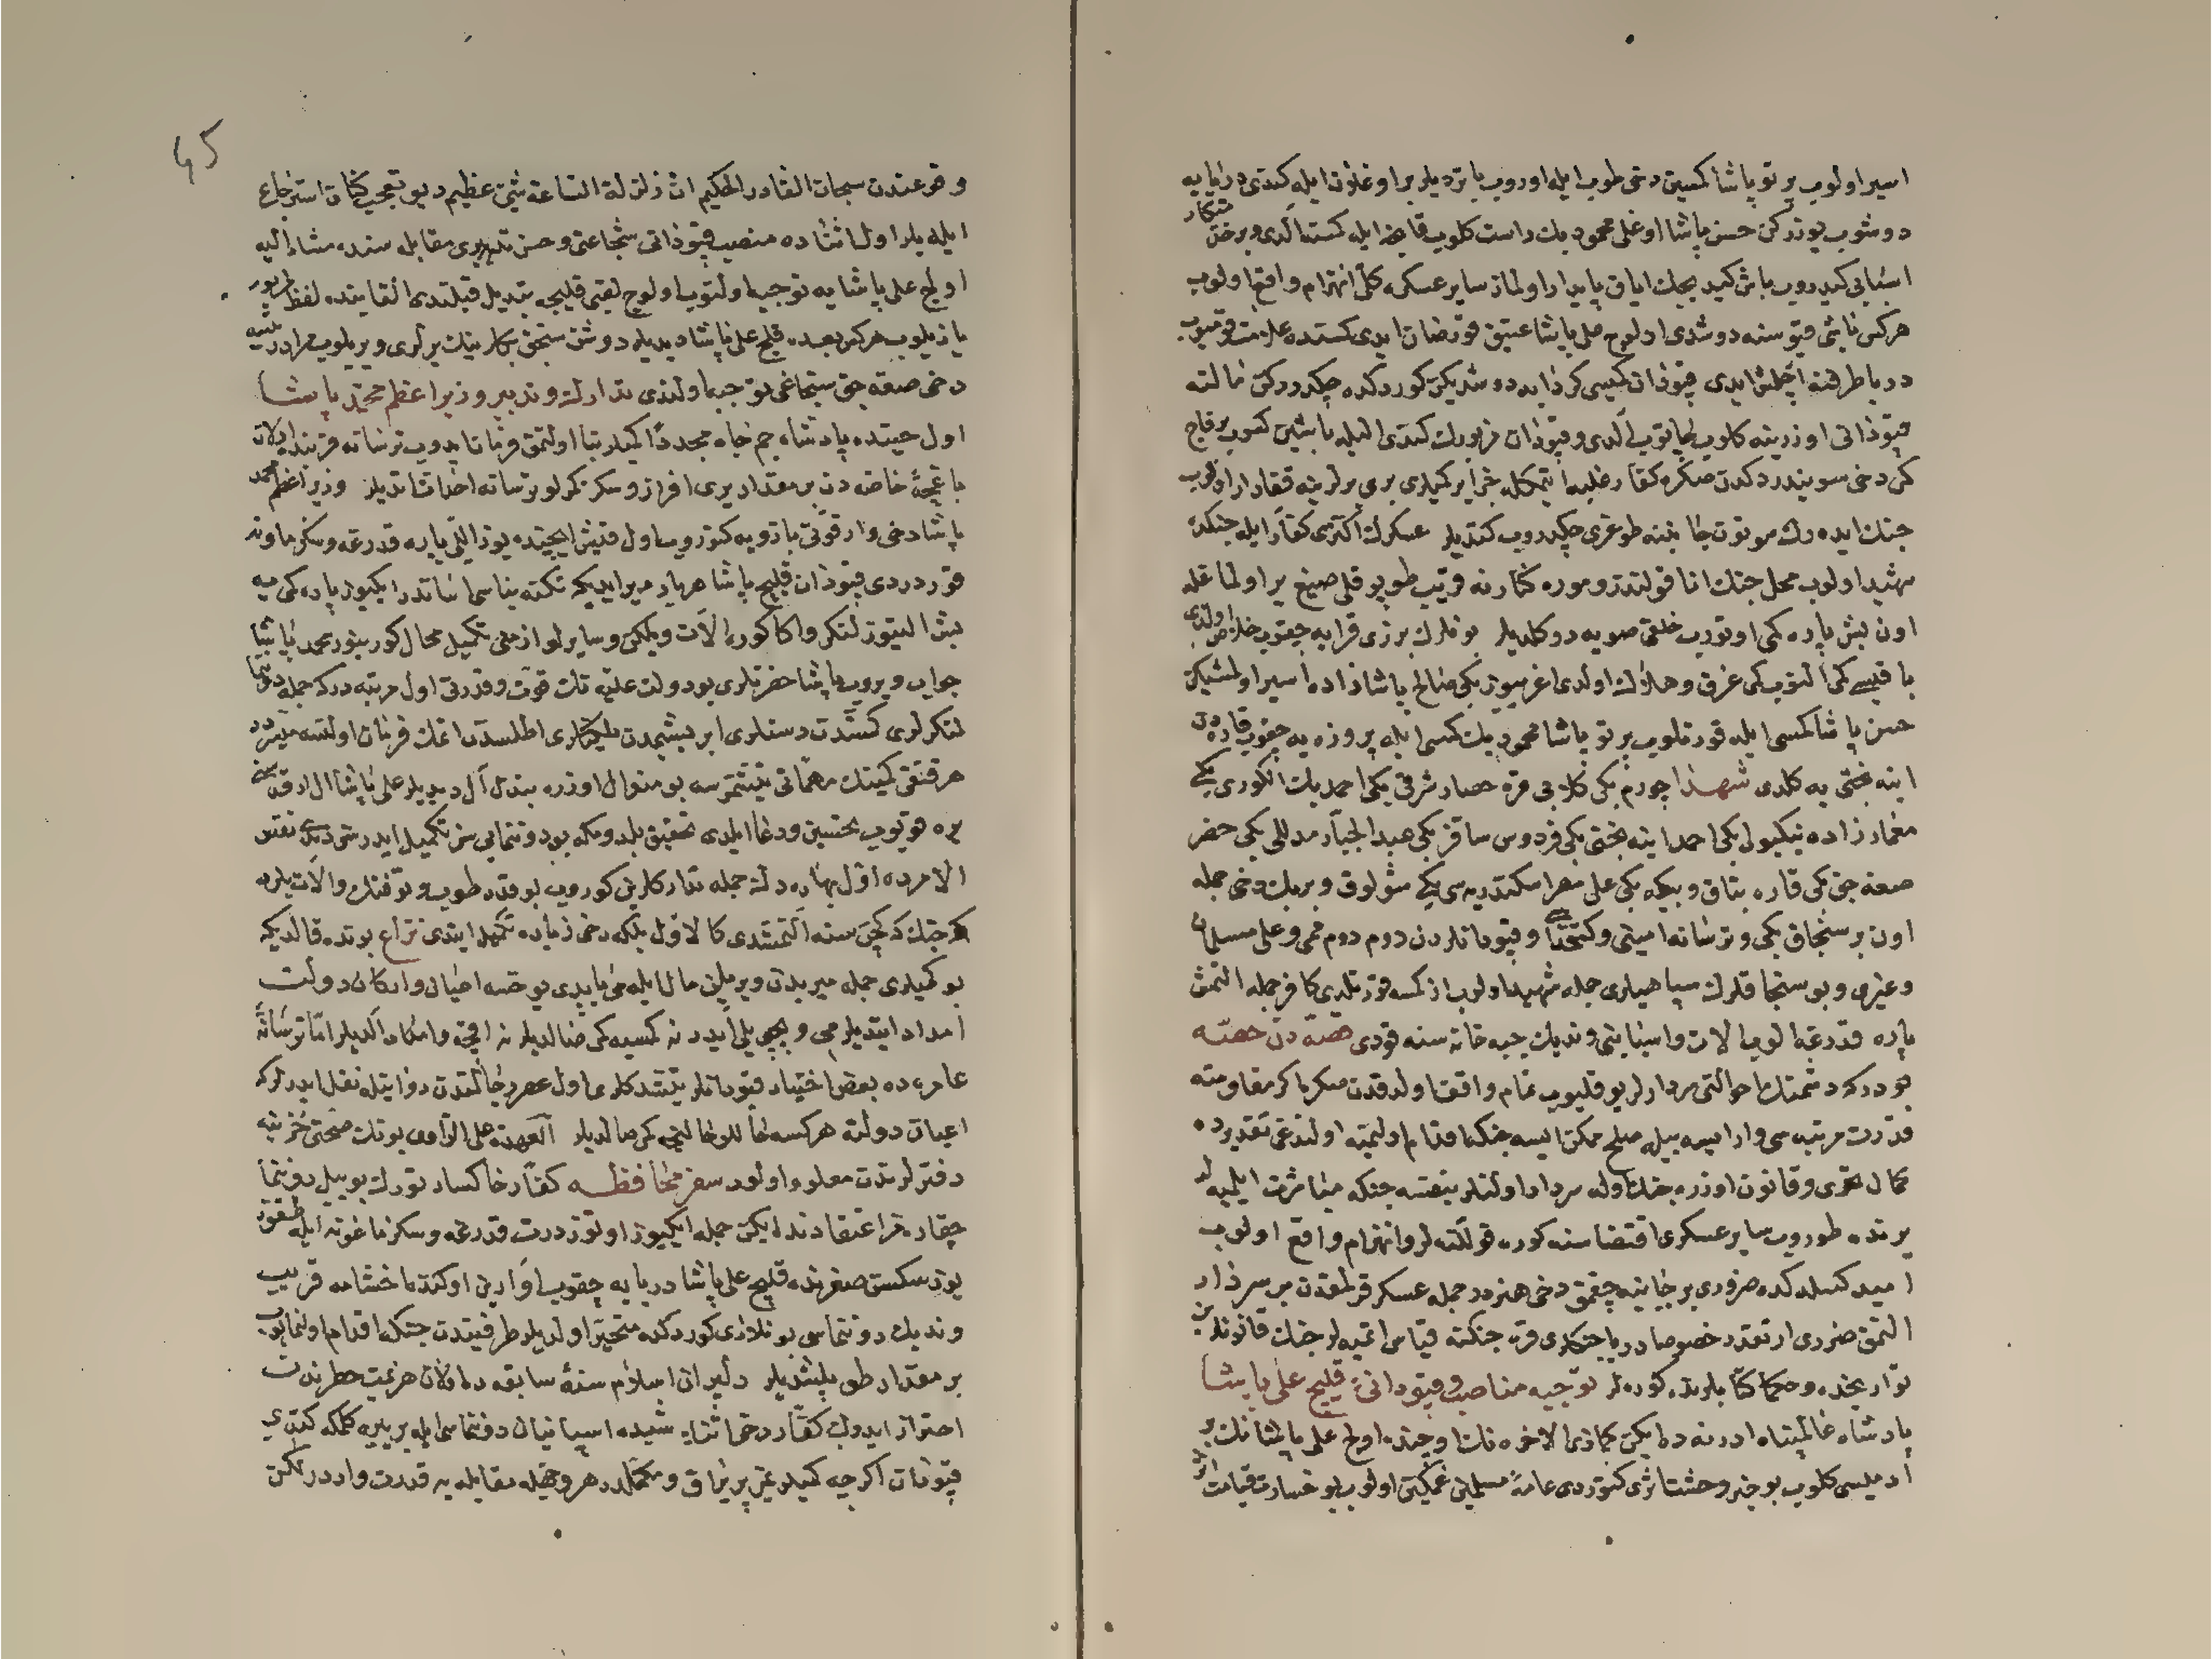 اسیر اولوب پرتو پاشا کمیسین دخی طوب ایله اوروب باتردیلر بر اوغلون ایله کندی دریایه
دوشوب یوزرکن حسن پاشا اوغلی محمود بك راست کلوب قایغ ایله کمیسنه الدی و بر خدمتکار
اسبابی کیدروب باش کیدیجك ایاق پایدار اولماز سایر عسکره کلی انهزام واقع اولوب
هرکس باشی قیوسنه دوشدی اولوج علی پاشا عتیق قورصان ایدی
دریا طرفنه اچلمش ایدی قپودان کمیسی کردابه دوشدیکن کوردکده چکدررکن مالته
قپودانی اوزرینه کلوب چاتوب الدی و قپودان مزبورك کندی الیله باشین کسوب بر قاچ
کمی دخی سویندردکدن صکره کفار غلبه ایتمکله جزایر کمیلری بری برلرینه قفادار اولوب
جنك ایده رك موتون جانبنه طوغری چکدروب کتدیلر عسکرك اکثری کفار ایله جنکده
شهید اولوب محل جنك انا قولندز و موره کنارنه قریب طوپوقلی صیغ یر اولماغله
اون بش پاره کمی اوتورب خلقی صویه دوکلدیلر بونلرك برزی قرایه چقوب خلاص اولدی
باقیسی کمی النوب کمی غرق و هلاك اولدی اغریبوز بکی صالح پاشازاده اسیر اولمشیکن
حسن پاشا کمسی ایله قورتلوب پرتو پاشا محمود بك کمسی ایله پروزه یه چقوب قاره دن
اینه بختی یه کلدی شهدا چورم بکی کلابی قره حصار شرقی بکی احمد بك انکوری بکی
معمارزاده نیکبولی بکی احمد اینه بختی بکی فردوس ساقز بکی عبدالجبار مدللی بکی خضر
صغه جق بکی قاره بتاق و بیکه بکی علی مصر اسکندریه سی بکی شولوق و بربك دخی جمله
اون بر سنجاق بکی و ترسانه امینی و کتخداسی و قپودانلردن دوم دوم ممی و علی مسلمان
وغیری و بو سنجاقلرك سپاهیلری جمله شهید اولوب از کمسه قورتلدی کافر جمله التمش
پاره قدرغه الوب الات و اسبابنی وندیك جبه خانه سنه قودی حصه دن حصه
بودرکه دشمنك احوالنی سردارلر یوقلیوب تمام واقف اولدقدن صکره اکر مقاومته
قدرت مرتبه سی وار ایسه بیله صلح ممکن ایسه جنکه اقدام اولنمیه اولندغی تقدیرده
کمال تحری و قانون اوزره جنك اوله سردار اولنلر بنفسه جنکه مباشرت ایلمیه لر
یرنده طوروب سایر عسکری اقتضاسنه کوره قوللنه لر و انهزام واقع اولوب
امید کسلدکده ضروری بر جانبه چقمق دخی هنردر جمله عسکر قرلمقدن بر سردار
المق ضروری ارتقدر خصوصا دریا جنکلری قره جنکنه قیاس اتمیه لر جنك قانوندن
تواریخده و حکما کتابلرنده کوره لر توجیه مناصب و قپودانی قلیج علی پاشا
پادشاه عالمپناه ادرنه ده ایکن جماذی الاخره نك اوچنده اولج علی پاشانك بر
ادمیسی کلوب بو خبر وحشت اثری کتوردی عامه مسلمین غمکین اولوب بو خسارت قیامت اثر
45
وقوعندن سبحان القادر الحکیم ان زلزلة الساعة شیئ عظیم دیو تعجب کنان استرجاع
ایلدیلر اول اثناده منصب قپودانی شجاعتی و حسن تدبیری مقابله سنده مشار الیه
اولج علی پاشایه توجیه اولنوب اولوج لقبی قلیجه تبدیل قیلندی القابنده لفظ مزبور
یازیلوب هرکس بعده قلج علی پاشا دیدیلر دوشن سنجق بکلرینك یرلری ویریلوب
دخی صغه جق سنجاغی توجیه اولندی تدارك و تدبیر وزیر اعظم محمد پاشا
اول حینده پادشاه جم جاه مجددا کمیلر بنا اولنمق فرمان ایدوب ترسانه قربنده اولان
باغچه خاصه دن بر مقدار یری افراز و سکز کمرلو ترسانه احداث اتدیلر وزیر اعظم محمد
پاشا دخی وار قوتی بازویه کتوروب اول قیش ایچنده یوز اللی پاره قدرغه و سکز ماونه
قوردردی قپودان قلیج پاشا هربار میرا یدیکه تکنه بناسی اساندر ایکیوز پاره کمی یه
بش التیوز لنکر و اکا کوره الات و یلکن و سایر لوازمنی تکمیل محال کورینور محمد پاشا
جواب ویروب پاشا حضرتلری بو دولت علیه نك قوت و قدرتی اول مرتبه درکه جمله دونما
لنکرلری کمشدن رسنلری ابریشمدن یلکنلری اطلسدن اتمك فرمان اولنسه میسردر
هر قنغی کمینك مهماتی یتشمزسه بو منوال اوزره بندن آل دیدیلر علی پاشا ال ارقه سنی
یره قویوب تحسین و دعا ایلدی تحقیق بلدمکه بو دونمایی سن تکمیل ایدرسن دیدی نفس
الامرده اول بهاره دك جمله تدارکلرین کوروب بو قدر طوب و توفنك و الات یلرد
جنك که کچن سنه التمشدی کالاول بلکه دخی زیاده تکمیل ایتدی نزاع بونده قالدیکه
بو کمیلری جمله میریدن ویریلن مال ایله می یاپدی یوخسه اعیان و ارکان دولت
امداد ایتدیلرمی و بیچی یلی ایدر نه کمسیه کمی صالدیلر نه اقچه و امداد الدیلر اما ترسانه
عامره ده بعض اختیار قپودانلر یتشدکلری اول عصر رجالندن روایتله نقل ایدرلرکه
اعیان دولته هرکسه حاللو حالنجه کمی صالدیلر العهدة علی الراوی بونك صحتی خزینه
دفترلرندن معلوم اولور سفر محافظه کفار خاکسار تورك بو ییل دونما
چقارمز اعتقادنده ایکن جمله ایکیوز اوتوز درت قدرغه و سکز ماغونه ایله طقوز
یوز سکسن صفرنده قلیج علی پاشا دریایه چقوب اوارین اوکنده اخشامه قریب
وندیك دونماسی بونلاری کوردکده متحیر اولدیلر طرفیندن جنکه اقدام اولنمایوب
بر مقدار طوبلشدیلر دلیران اسلام سنه سابقه ده اولان هزیمت خطرندن
احتراز ایدوب کفار دخی اثنای شیبده اسپانیان دونماسی ایله بربیره کلمکه کتدی
قپودان اکرچه کمیلر غیر پریراق و مکملدر هر وجهله مقابله یه قدرت واردر لکن